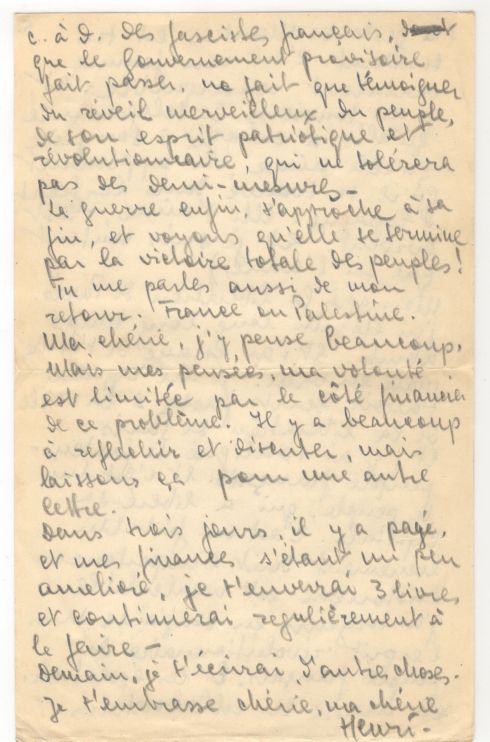 c. à d. des fascistes français,
que le gouvernement provisoire
fait passer, ne fait que témoigner
du réveil merveilleux du peuple,
de son esprit patriotique et
révolutionnaire, qui ne tolérera
pas des demi-mesures –
La guerre enfin, s'approche à sa
fin, et voyons qu'elle se termine
par la victoire totale des peuples!
Tu me parles aussi de mon
retour. France ou Palestine.
Ma chérie, j'y pense beaucoup.
Mais mes pensées, ma volonté
est limitée par le côté financier
de ce problème. Il y a beaucoup
à reflechir et discuter, mais
laissons ça pour une autre
lettre.
Dans trois jours, il y a page,
et mes finances s'étant un peu
amelioré, je t'enverrai 3 livres
et continuerai regulièrement à
le faire –
Demain, je t'écrirai d'autres choses.
Je t'embrasse chérie, ma chérie
Henri –